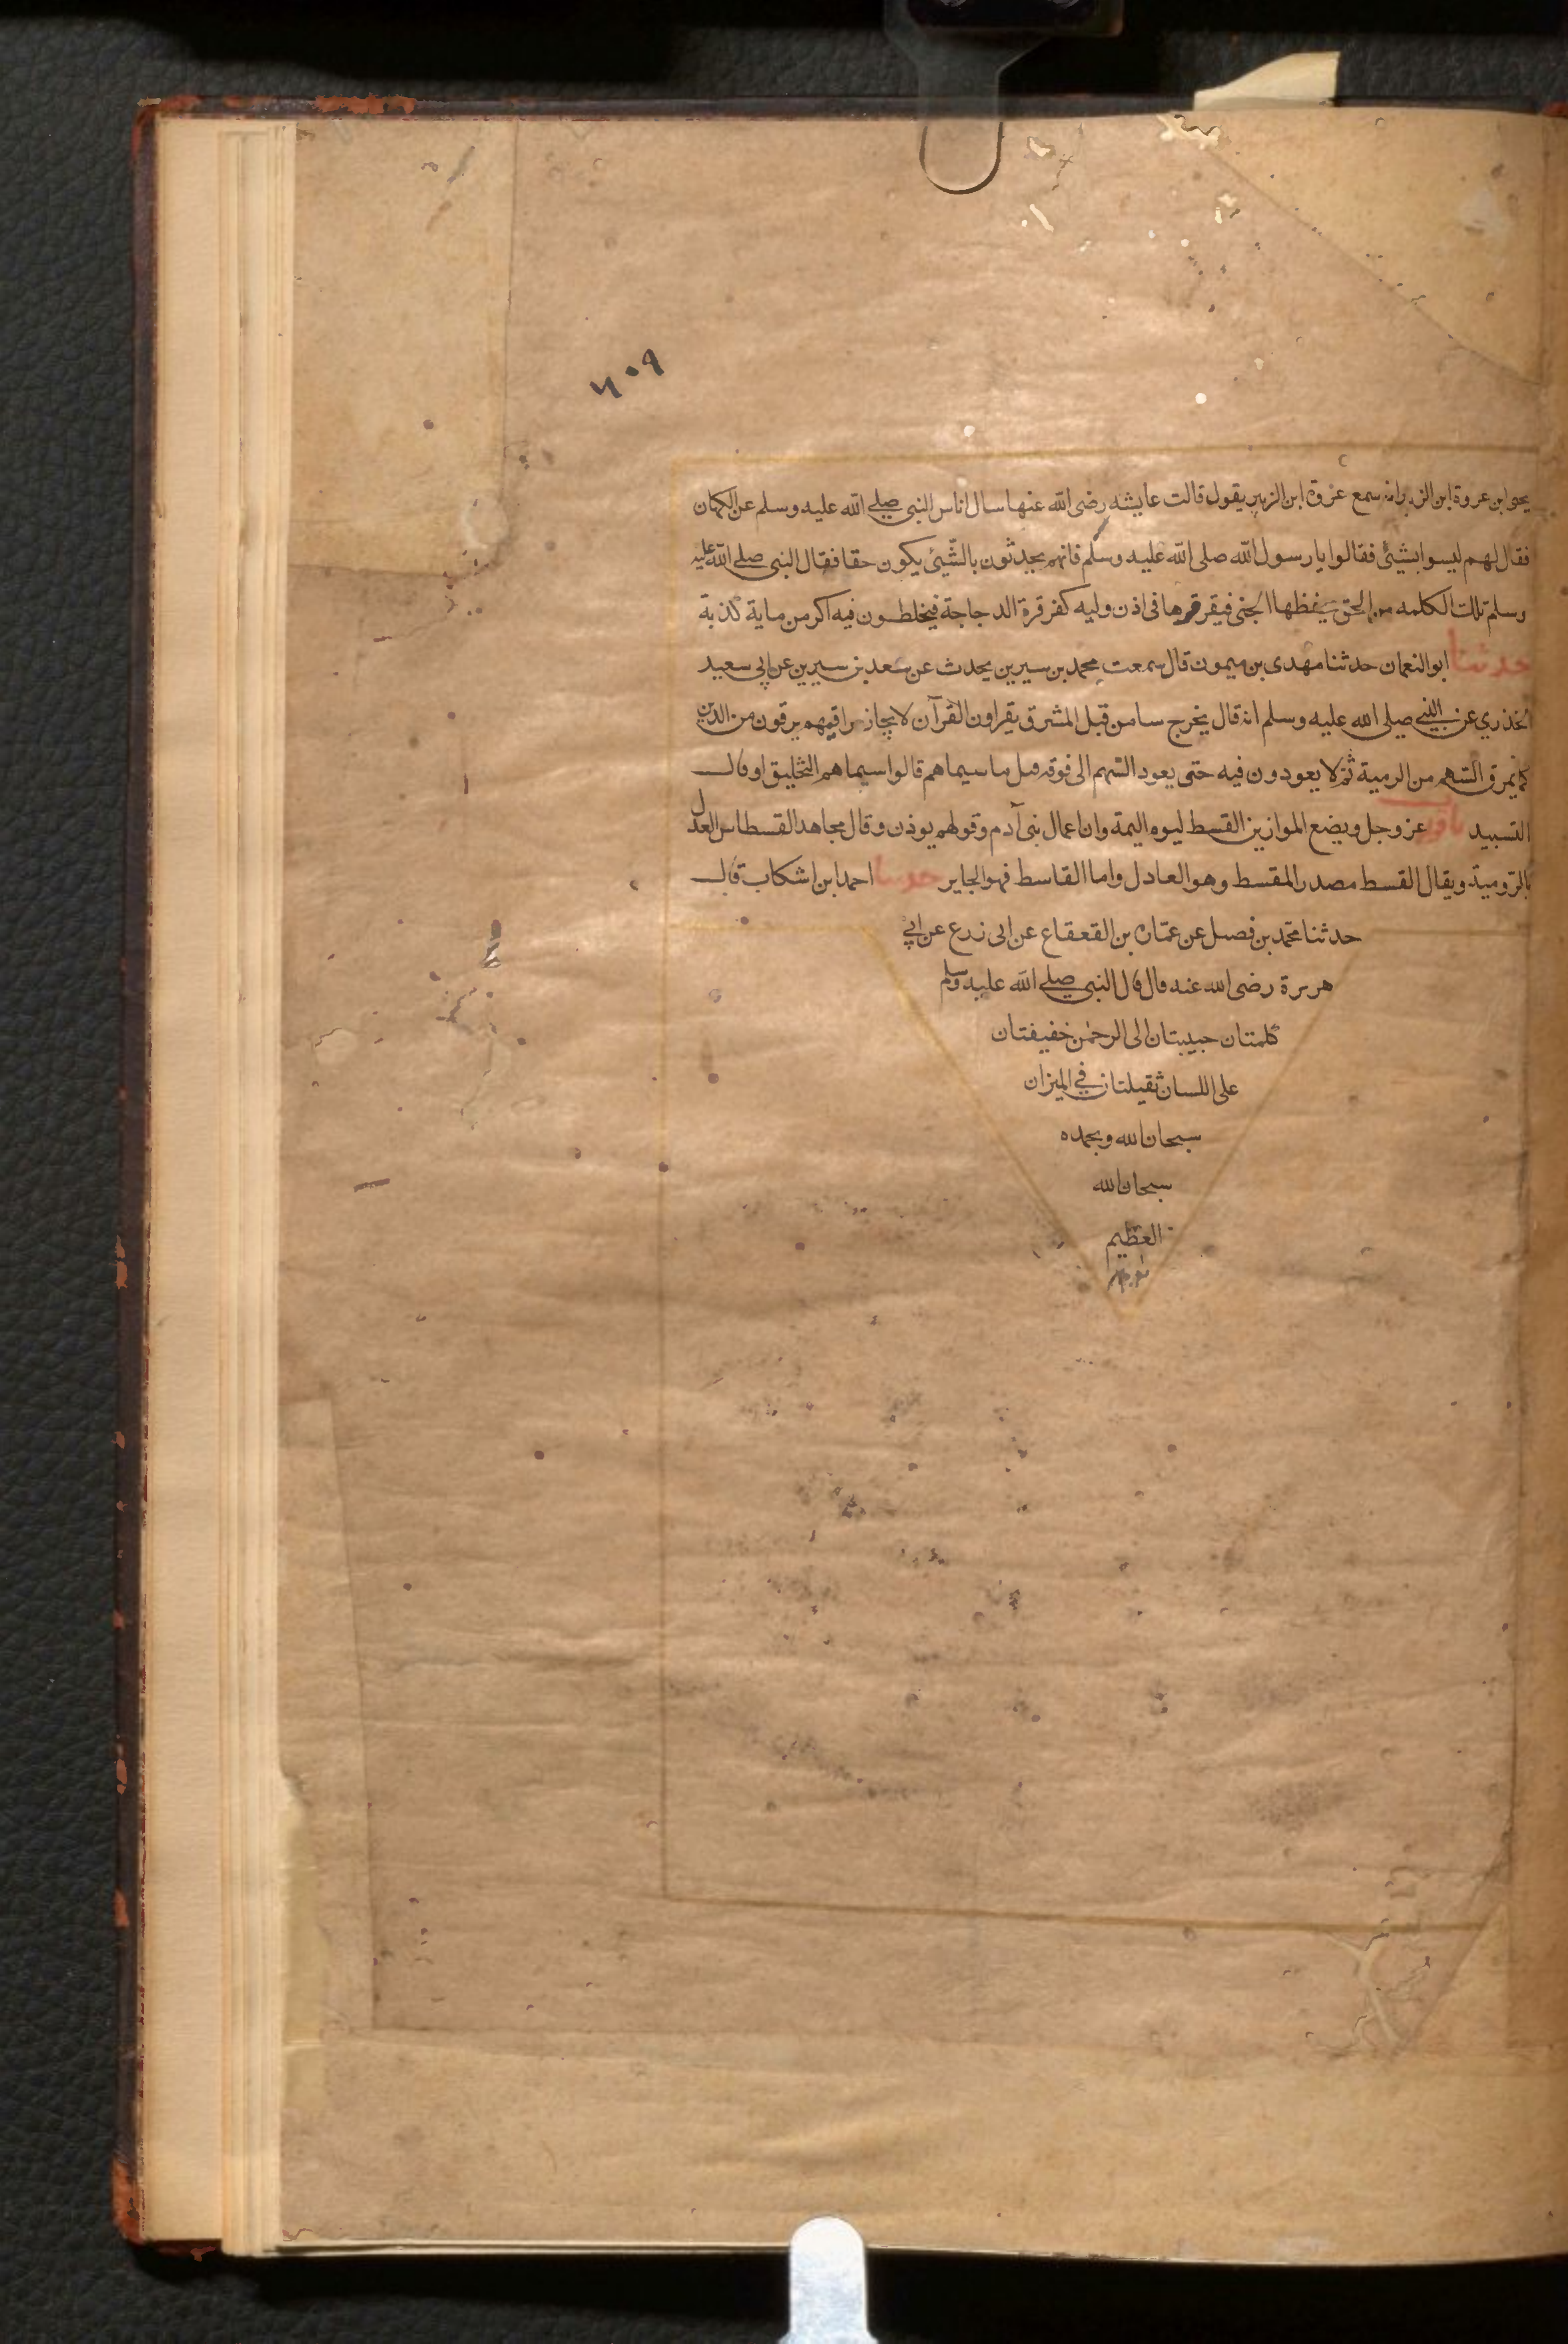 ٤٠٩
يحيى ابن عروة ابن الزبير انه سمع عروة ابن الزبير يقول قالت عايشه رضى الله عنها سال اناس النبى صلى الله عليه وسلم عن الكهان
فقال لهم ليسوا بشيئ فقالوا يا رسول الله صلى الله عليه وسلم فانهم يحدثون بالشيئ يكون حقا فقال النبى صلى الله عليه
وسلم تلك الكلمه من الحق يحفظها الجنى فيقرقرها فى اذن وليه كقرقرة الدجاجة فيخلطون فيه اكثر من ماية كذبة
حدثنا ابو النعمان حدثنا مهدى بن ميمون قال سمعت محمد بن سيرين يحدث عن سعد بن سيرين عن ابى سعيد
الخذري عن النبى صلى الله عليه وسلم انه قال يخرج من قبل المشرق يقراون القرآن لا يجاز تراقيهم يرقون من الدين
كما تمرق السهم من الرمية ثم لا يعودون فيه حتى يعود السهم الى فوقه قيل ما سيماهم قالوا سيماهم التحليق او قال
التسبيد عز وجل ويضع الموازين القسط ليوم القيمة وان اعمال بنى آدم وقولهم يوذن وقال مجاهد القسطاس العدل
بالرومية ويقال القسط مصدر المقسط وهو العادل واما القاسط فهو الجاير حدثنا احمد ابن اشكاب قال
حدثنا محمد بن فصيل عن عمارة بن القعقاع عن ابى زرع عن ابى
هريرة رضى الله عنه قال قال النبى صلى الله عليه وسلم
كلمتان حبيبتان الى الرحمن خفيفتان
على اللسان ثقيلتان في الميزان
سبحان الله وبحمده
سبحان الله
العظيم